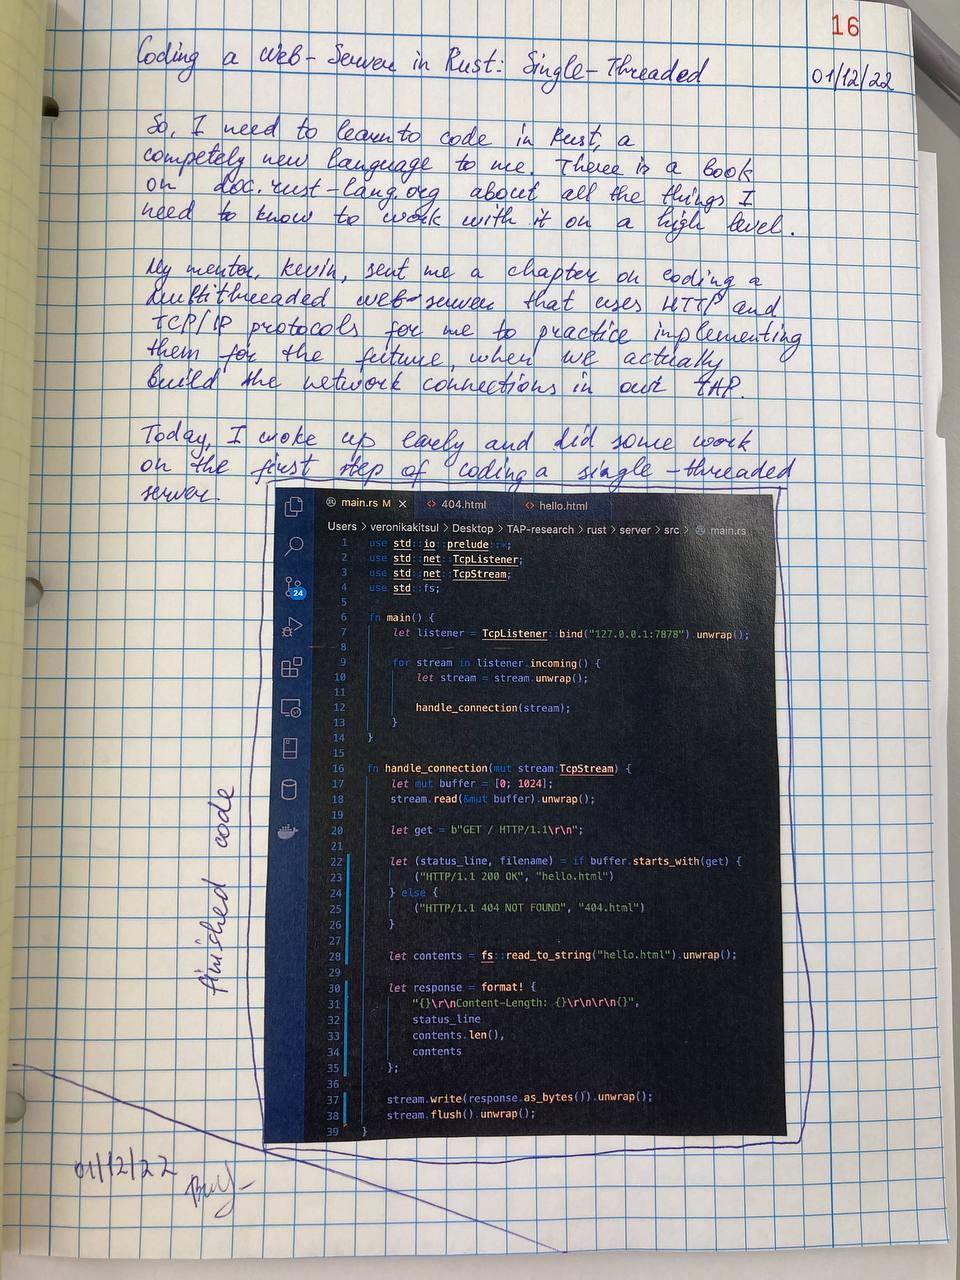 16
Coding a Web-Server in Rust: Single-Threaded
01/12/22
So, I need to learn to code in Rust, a
competely new language to me. There is a book
on doc.rust-lang.org about all the things I
need to know to work with it on a high level.
My mentor, Kevin, sent me a chapter on coding a
multithreaded web-server that uses HTTP and
TCP/IP protocols for me to practice implementing
them for the future, when we actually
build the network connections in our TAP.
Today, I woke up early and did some work
on the first step of coding a single-threaded
server.
main.rs M × <> 404.html <> hello.html
Users > veronikakitsul > Desktop > TAP-research > rust > server > src > main.rs
24
1 use std::io::prelude::*;
2 use std::net::TcpListener;
3 use std::net::TcpStream;
4 use std::fs;
5
6 fn main() {
7 let listener = TcpListener::bind("127.0.0.1:7878").unwrap();
8
9 for stream in listener.incoming() {
10 let stream = stream.unwrap();
11
12 handle_connection(stream);
13 }
14 }
15
16 fn handle_connection(mut stream:TcpStream) {
17 let mut buffer = [0; 1024];
18 stream.read(&mut buffer).unwrap();
19
20 let get = b"GET / HTTP/1.1\r\n";
21
22 let (status_line, filename) = if buffer.starts_with(get) {
23 ("HTTP/1.1 200 OK", "hello.html")
24 } else {
25 ("HTTP/1.1 404 NOT FOUND", "404.html")
26 }
27
28 let contents = fs::read_to_string("hello.html").unwrap();
29
30 let response = format! {
31 "{}\r\nContent-Length: {}\r\n\r\n{}",
32 status_line
33 contents.len(),
34 contents
35 };
36
37 stream.write(response.as_bytes()).unwrap();
38 stream.flush().unwrap();
39 }
finished code
01/12/22